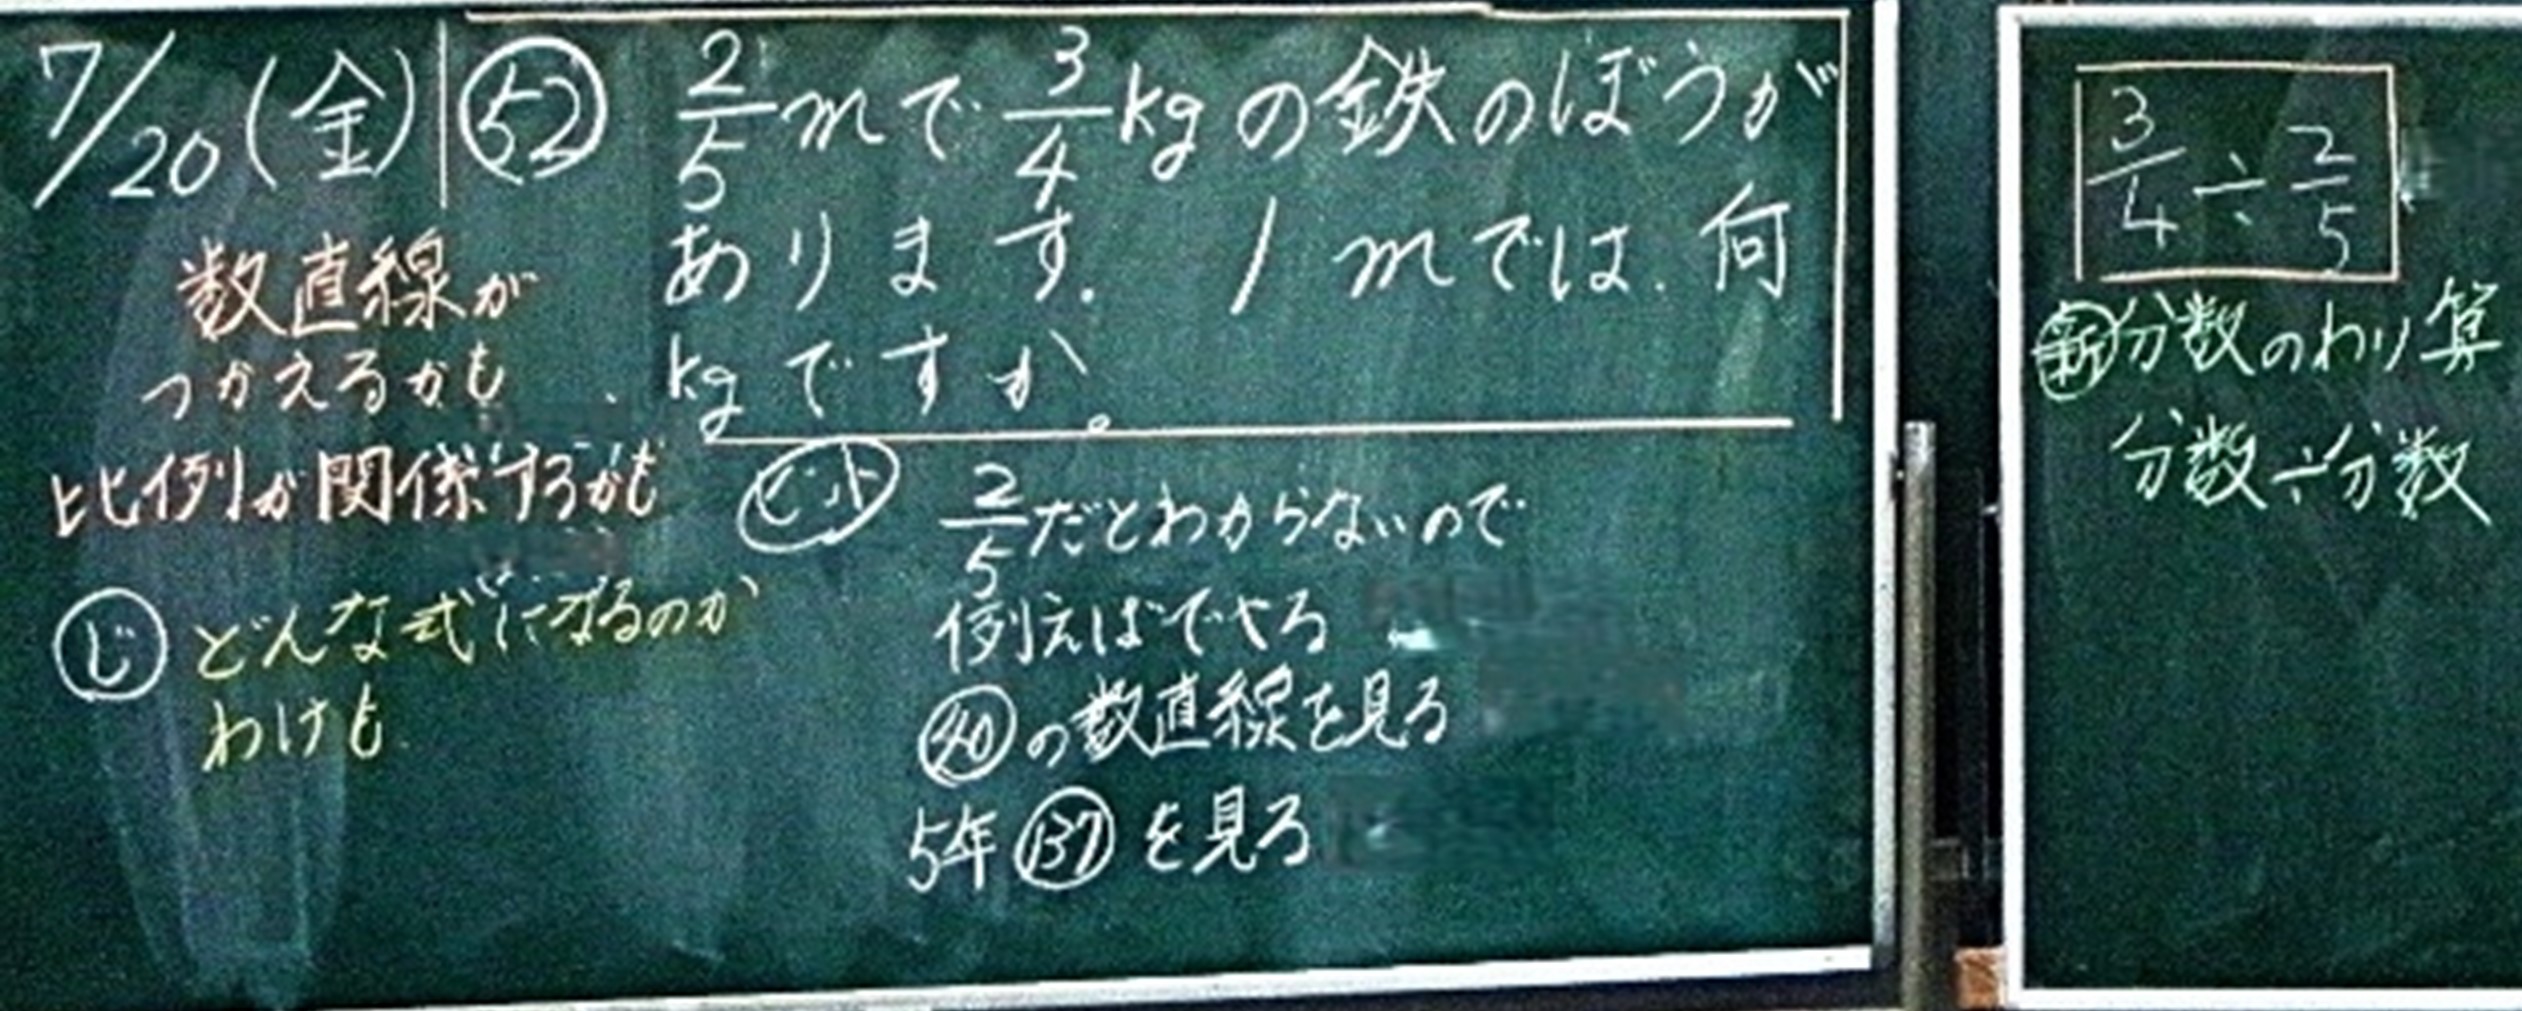 7/20(金) 52 2/5mで3/4kgの鉄のぼうが
あります. 1mでは.何
kgですか。
数直線が
つかえるかも
比例が関係するかも
じ どんな式になるのか
わけも
ヒント 2/5だとわからないので
例えばでやる
40の数直線を見る
5年 137 を見る
3/4÷2/5
新 分数のわり算
分数÷分数